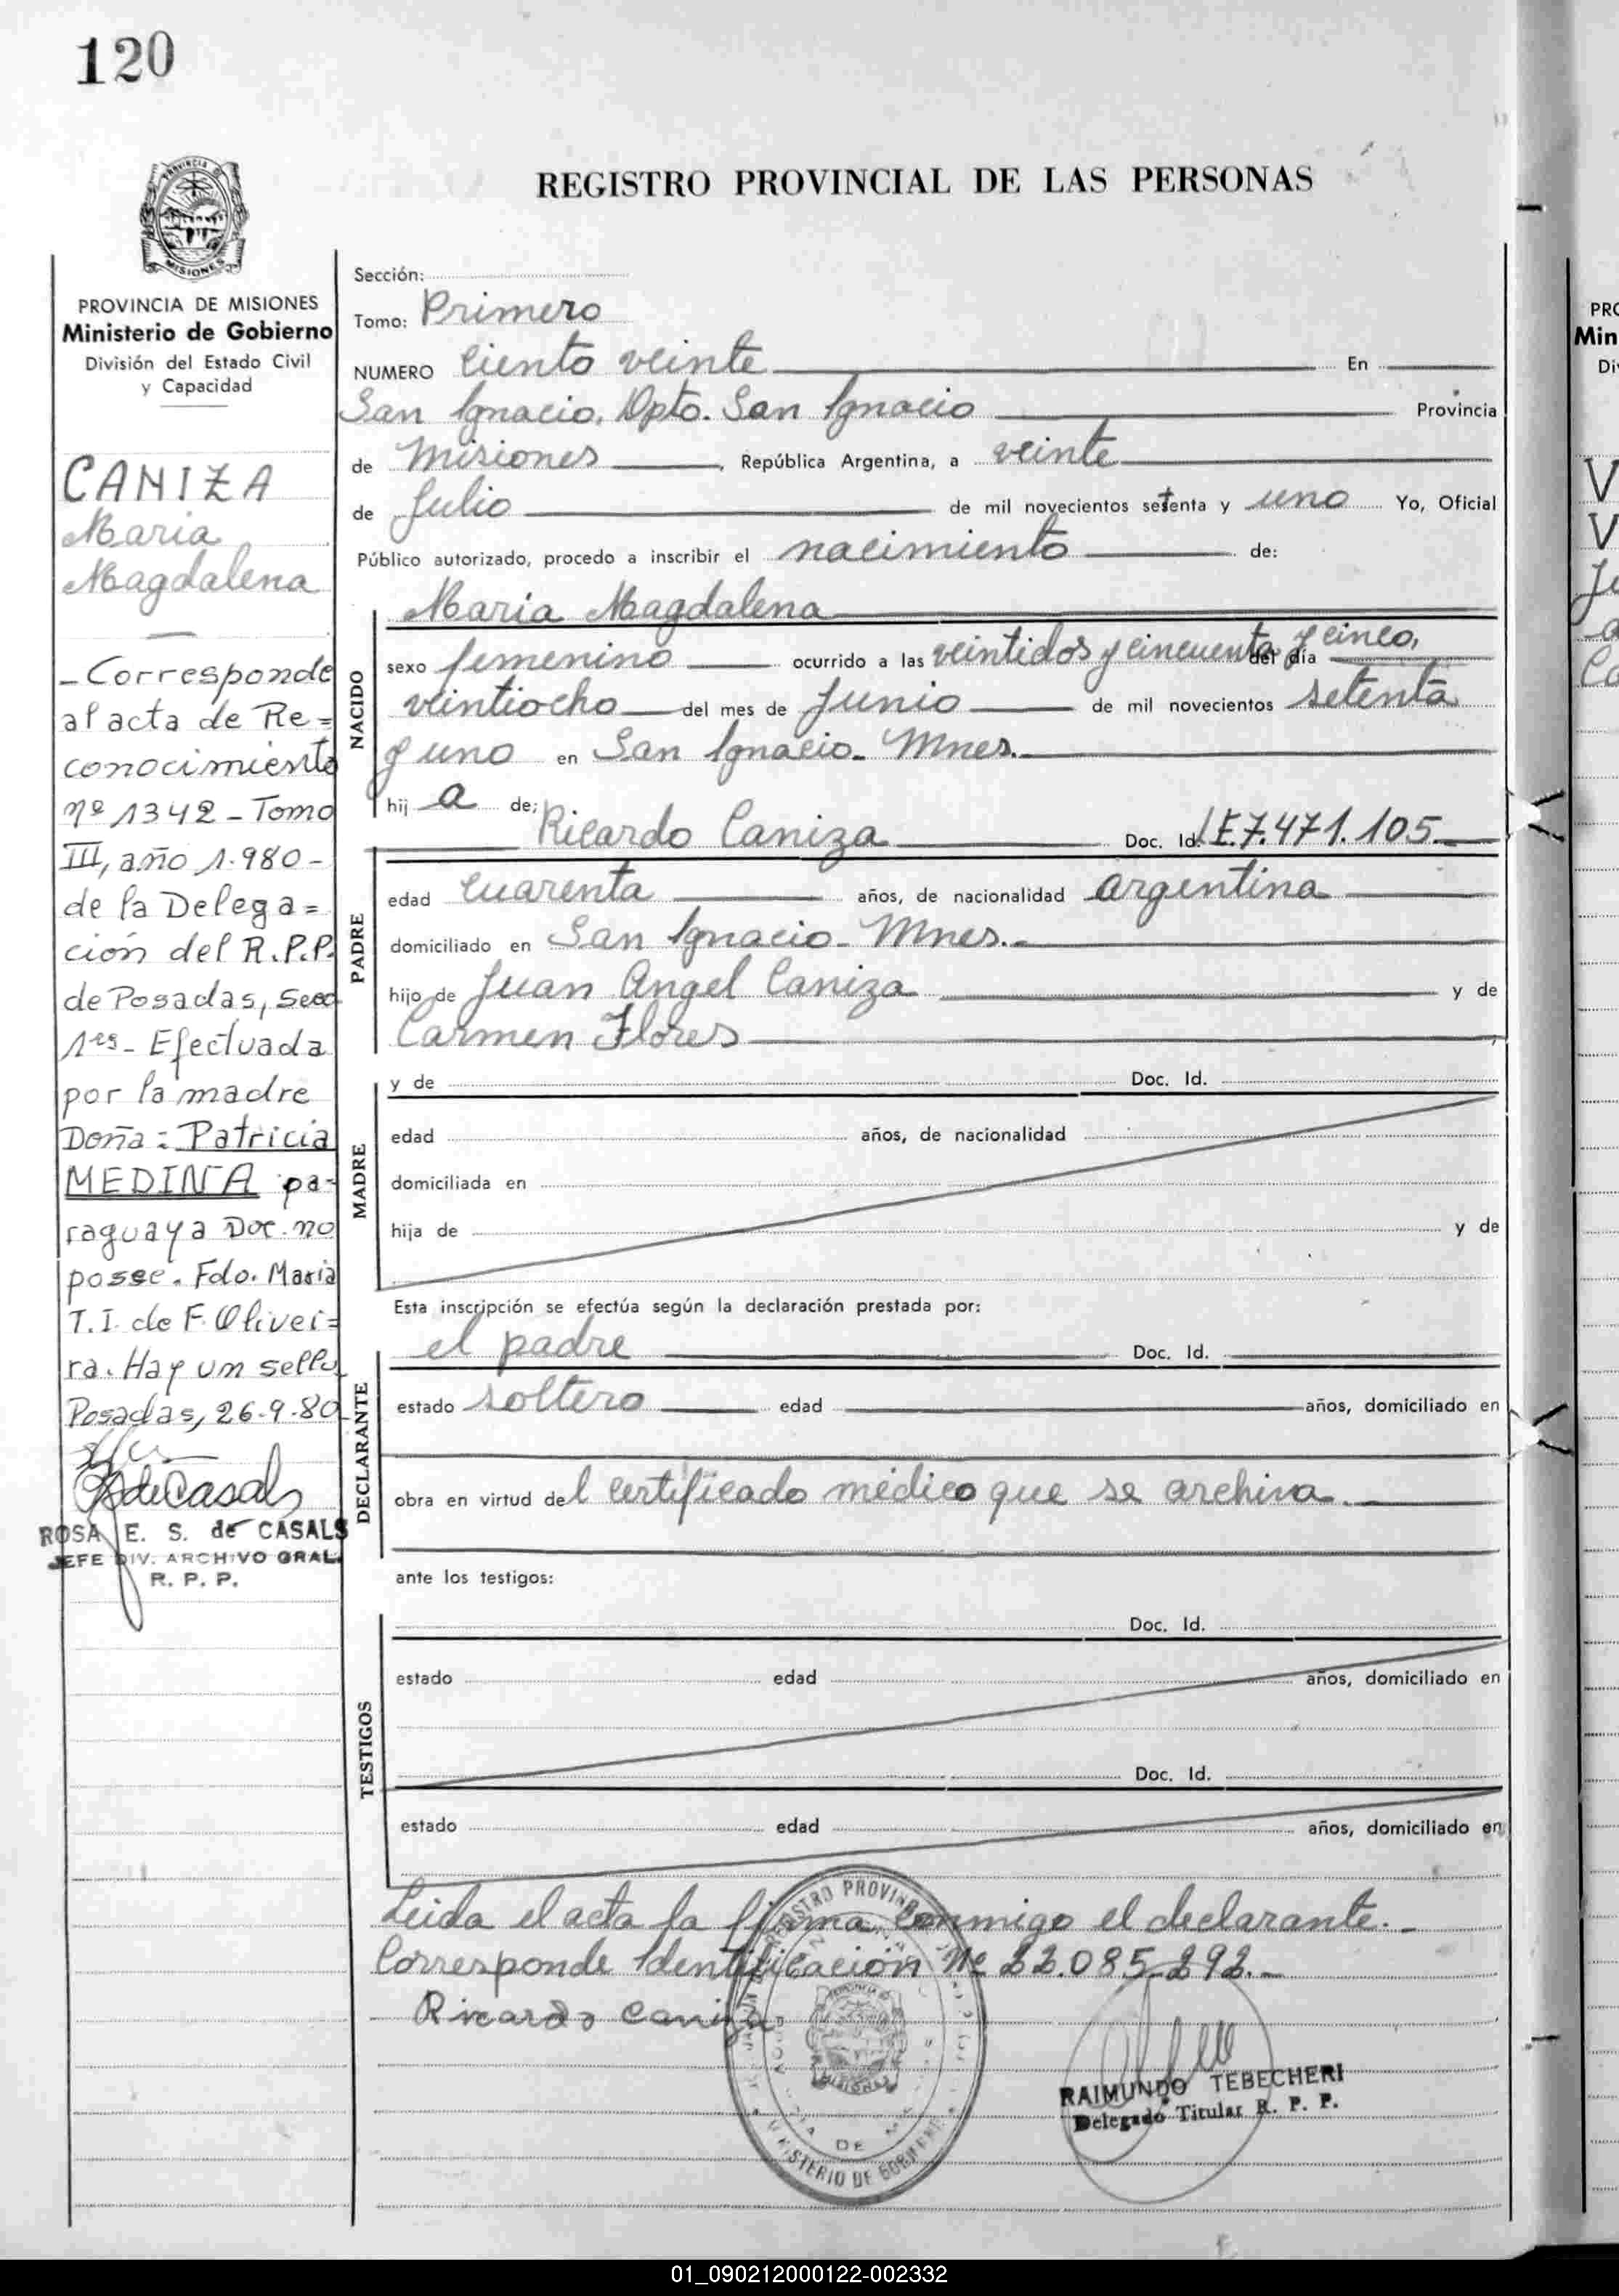 120
REGISTRO PROVINCIAL DE LAS PERSONAS
PROVINCIA
MISIONES
PROVINCIA DE MISIONES
Ministerio de Gobierno
División del Estado Civil
y Capacidad
CANIZA
Maria
Magdalena
- Corresponde
al acta de Re=
conocimiento
nº 1342 - Tomo
III, año 1.980 -
de la Delega=
ción del R.P.P.
de Posadas, Secc
1ra - Efectuada
por la madre
Doña: Patricia
MEDINA pa-
raguaya Doc. no
posee. Fdo. Maria
T.I. de F. Olivei=
ra. Hay un sello
Posadas, 26-9-80
RdeCasals
ROSA E. S. de CASALS
JEFE DIV. ARCHIVO GRAL.
R. P. P.
Sección:
Tomo: Primero
NUMERO Ciento veinte En
San Ignacio, Dpto. San Ignacio Provincia
de Misiones, República Argentina, a veinte
de Julio de mil novecientos setenta y uno Yo, Oficial
Público autorizado, procedo a inscribir el nacimiento de:
Maria Magdalena
NACIDO
sexo femenino ocurrido a las veintidos y cincuenta y cinco, del día
veintiocho del mes de Junio de mil novecientos setenta
y uno en San Ignacio - Mnes.
hij a de:
Ricardo Caniza Doc. Id. L.E.7.471.105.
PADRE
edad cuarenta años, de nacionalidad argentina
domiciliado en San Ignacio - Mnes.-
hijo de Juan Angel Caniza y de
Carmen Flores
MADRE
y de Doc. Id.
edad años, de nacionalidad
domiciliada en
hija de y de
Esta inscripción se efectúa según la declaración prestada por:
el padre Doc. Id.
DECLARANTE
estado soltero edad años, domiciliado en
obra en virtud del certificado médico que se archiva.
ante los testigos:
TESTIGOS
Doc. Id.
estado edad años, domiciliado en
Doc. Id.
estado edad años, domiciliado en
Leida el acta la firma conmigo el declarante.-
Corresponde Identificación Nº 22.085.292.-
Ricardo Caniza
REGISTRO PROVIN
MISIONES
DE
MINISTERIO DE GOBIERNO
RAIMUNDO TEBECHERI
Delegado Titular R. P. P.
PRO
Min
Di
01_090212000122-002332